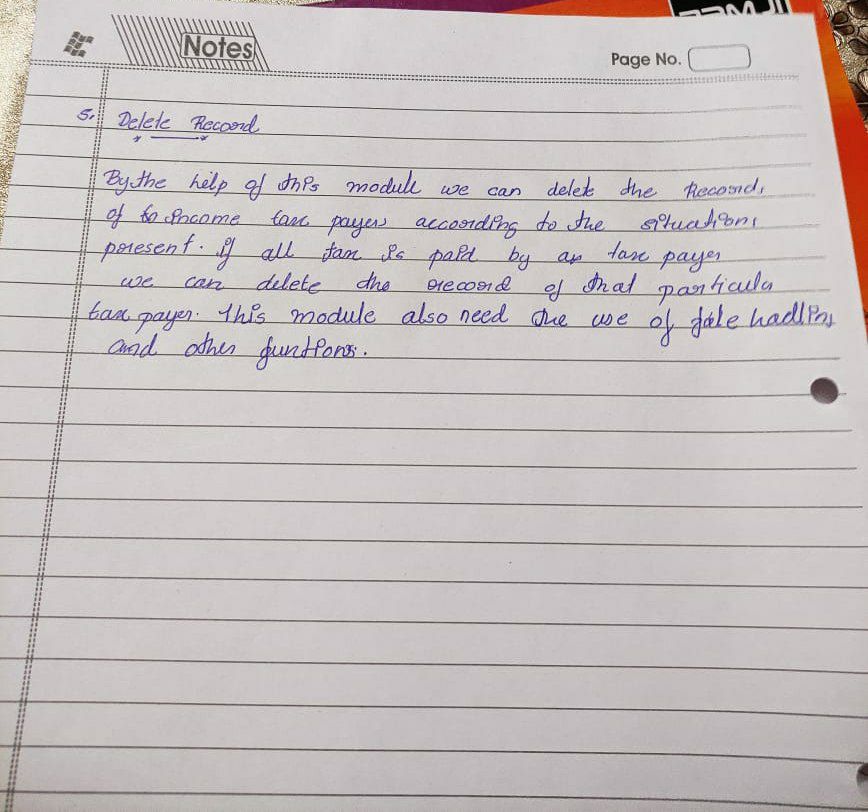 Notes
Page No.
5. Delete Record
By the help of this module we can delete the Records
of to income tax payers according to the situations
present. if all tax is paid by an tax payer
we can delete the record of that particular
tax payer. this module also need the use of file hadling
and other funtions.